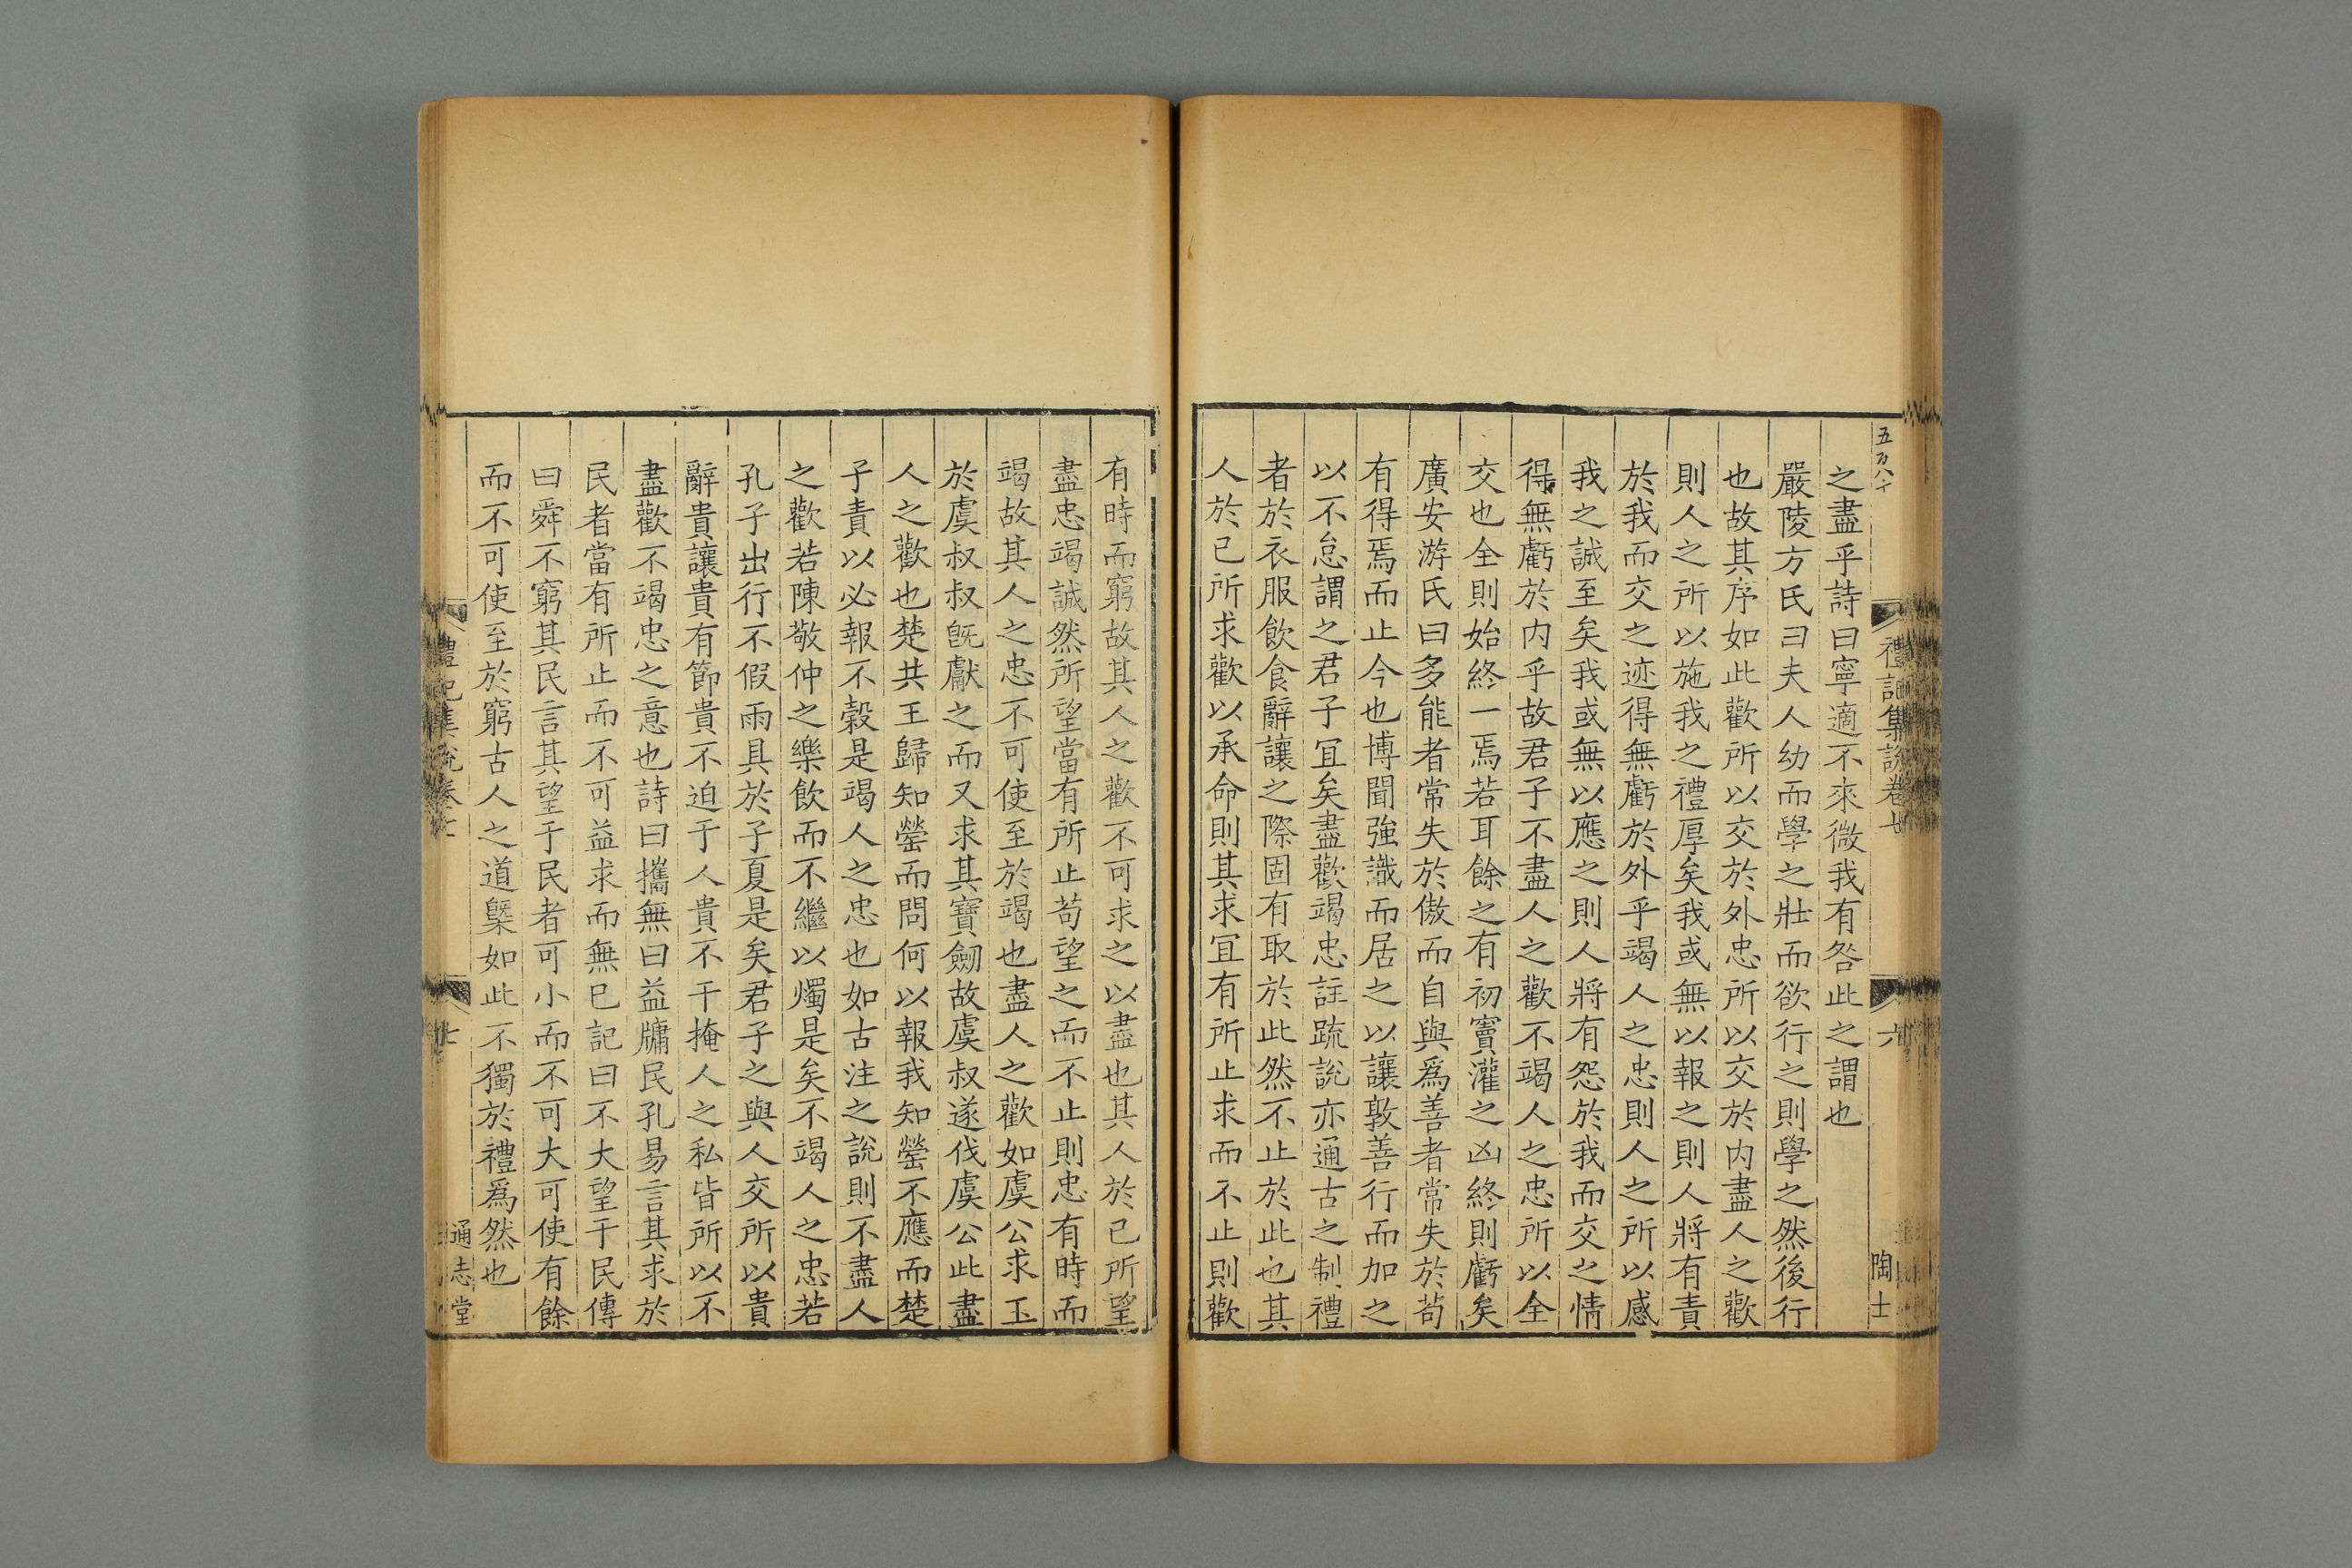 五百八十
禮記集說卷七
六
陶士
之盡乎詩曰寧適不來微我有咎此之謂也
嚴陵方氏曰夫人幼而學之壯而欲行之則學之然後行
也故其序如此歡所以交於外忠所以交於内盡人之歡
則人之所以施我之禮厚矣我或無以報之則人將有責
於我而交之迹得無虧於外乎竭人之忠則人之所以感
我之誠至矣我或無以應之則人將有怨於我而交之情
得無虧於内乎故君子不盡人之歡不竭人之忠所以全
交也全則始終一焉若耳餘之有初竇灌之凶終則虧矣
廣安游氏曰多能者常失於傲而自與爲善者常失於苟
有得焉而止今也博聞強識而居之以讓敦善行而加之
以不怠謂之君子宜矣盡歡竭忠註疏說亦通古之制禮
者於衣服飲食辭讓之際固有取於此然不止於此也其
人於已所求歡以承命則其求宜有所止求而不止則歡
有時而窮故其人之歡不可求之以盡也其人於已所望
盡忠竭誠然所望當有所止苟望之而不止則忠有時而
竭故其人之忠不可使至於竭也盡人之歡如虞公求玉
於虞叔叔旣獻之而又求其寶劒故虞叔遂伐虞公此盡
人之歡也楚共王歸知罃而問何以報我知罃不應而楚
子責以必報不穀是竭人之忠也如古注之說則不盡人
之歡若陳敬仲之樂飲而不繼以燭是矣不竭人之忠若
孔子出行不假雨具於子夏是矣君子之與人交所以貴
辭貴讓貴有節貴不迫于人貴不干掩人之私皆所以不
盡歡不竭忠之意也詩曰攜無曰益牖民孔易言其求於
民者當有所止而不可益求而無已記曰不大望于民傳
曰舜不窮其民言其望于民者可小而不可大可使有餘
而不可使至於窮古人之道槩如此不獨於禮爲然也
禮記集說卷七
七
通志堂